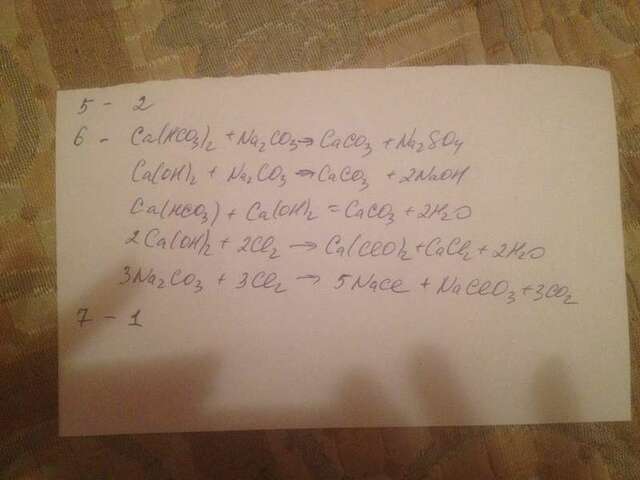 5 - 2
6 - Ca(HCO₃)₂ + Na₂CO₃ → CaCO₃ + Na₂SO₄
Ca(OH)₂ + Na₂CO₃ → CaCO₃ + 2NaOH
Ca(HCO₃) + Ca(OH)₂ = CaCO₃ + 2H₂O
2Ca(OH)₂ + 2Cl₂ → Ca(ClO)₂ + CaCl₂ + 2H₂O
3Na₂CO₃ + 3Cl₂ → 5NaCl + NaClO₃ + 3CO₂
7 - 1